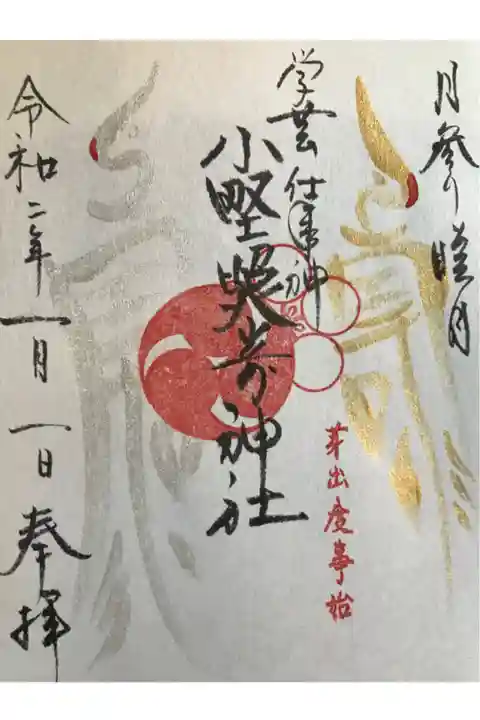 月参り 睦月
学芸 仕事神
小野照崎神社
芽出度事始
令和二年一月一日 奉拝